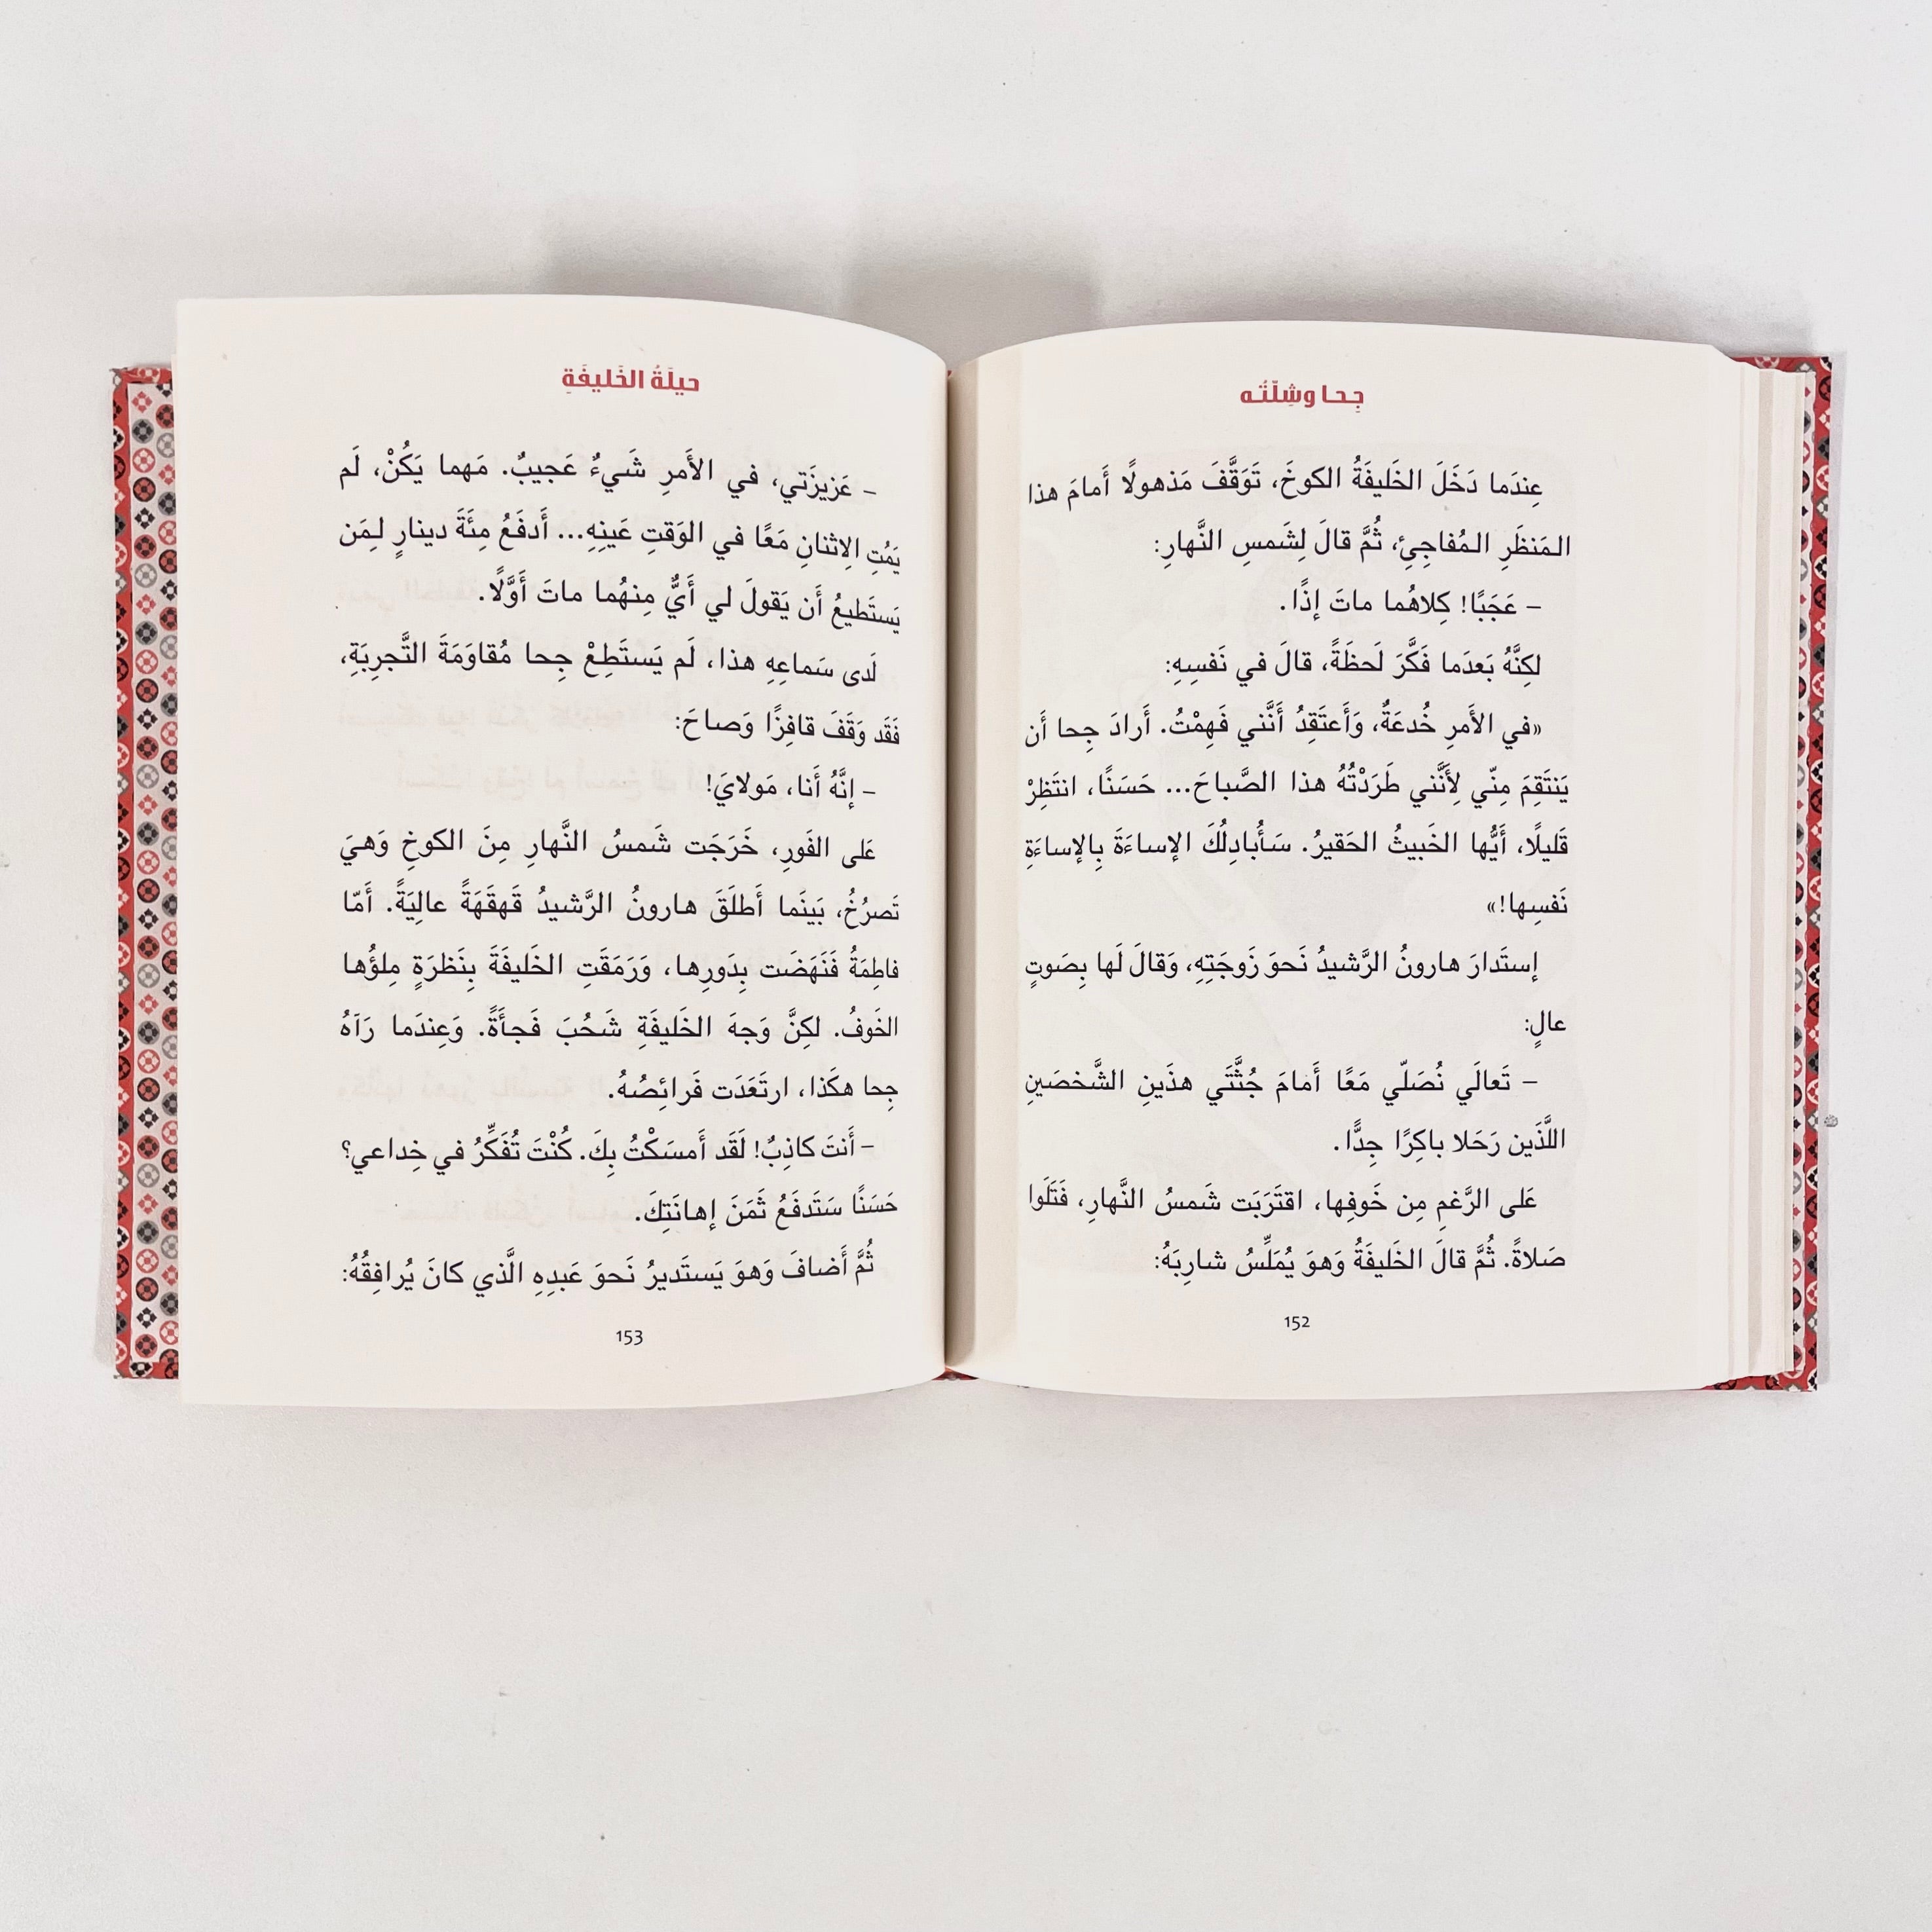 جِحا وشِلّتُه
عِندَما دَخَلَ الخَليفَةُ الكوخَ، تَوَقَّفَ مَذهولًا أَمامَ هذا
المَنظَرِ المُفاجِئِ، ثُمَّ قالَ لِشَمسِ النَّهارِ:
– عَجَبًا! كِلاهُما ماتَ إذًا.
لكِنَّهُ بَعدَما فَكَّرَ لَحظَةً، قالَ في نَفسِهِ:
«في الأَمرِ خُدعَةٌ، وَأَعتَقِدُ أَنَّني فَهِمْتُ. أَرادَ جِحا أَن
يَنتَقِمَ مِنّي لِأَنَّني طَرَدْتُهُ هذا الصَّباحَ... حَسَنًا، انتَظِرْ
قَليلًا، أَيُّها الخَبيثُ الحَقيرُ. سَأُبادِلُكَ الإساءَةَ بِالإساءَةِ
نَفسِها!»
إستَدارَ هارونُ الرَّشيدُ نَحوَ زَوجَتِهِ، وَقالَ لَها بِصَوتٍ
عالٍ:
– تَعالَي نُصَلّي مَعًا أَمامَ جُثَّتَي هذَينِ الشَّخصَينِ
اللَّذَين رَحَلا باكِرًا جِدًّا.
عَلى الرَّغمِ مِن خَوفِها، اقتَرَبَت شَمسُ النَّهارِ، فَتَلَوا
صَلاةً. ثُمَّ قالَ الخَليفَةُ وَهوَ يُمَلِّسُ شارِبَهُ:
152
حيلَةُ الخَليفَةِ
– عَزيزَتي، في الأَمرِ شَيءٌ عَجيبٌ. مَهما يَكُنْ، لَم
يَمُتِ الِاثنانِ مَعًا في الوَقتِ عَينِهِ... أَدفَعُ مِئَةَ دينارٍ لِمَن
يَستَطيعُ أَن يَقولَ لي أَيٌّ مِنهُما ماتَ أَوَّلًا.
لَدى سَماعِهِ هذا، لَم يَستَطِعْ جِحا مُقاوَمَةَ التَّجرِبَةِ،
فَقَد وَقَفَ قافِزًا وَصاحَ:
– إنَّهُ أَنا، مَولايَ!
عَلى الفَورِ، خَرَجَت شَمسُ النَّهارِ مِنَ الكوخِ وَهيَ
تَصرُخُ، بَينَما أَطلَقَ هارونُ الرَّشيدُ قَهقَهَةً عالِيَةً. أَمّا
فاطِمَةُ فَنَهَضَت بِدَورِها، وَرَمَقَتِ الخَليفَةَ بِنَظرَةٍ مِلؤُها
الخَوفُ. لكِنَّ وَجهَ الخَليفَةِ شَحُبَ فَجأَةً. وَعِندَما رَآهُ
جِحا هكَذا، ارتَعَدَت فَرائِصُهُ.
– أَنتَ كاذِبٌ! لَقَد أَمسَكْتُ بِكَ. كُنْتَ تُفَكِّرُ في خِداعي؟
حَسَنًا سَتَدفَعُ ثَمَنَ إهانَتِكَ.
ثُمَّ أَضافَ وَهوَ يَستَديرُ نَحوَ عَبدِهِ الَّذي كانَ يُرافِقُهُ:
153